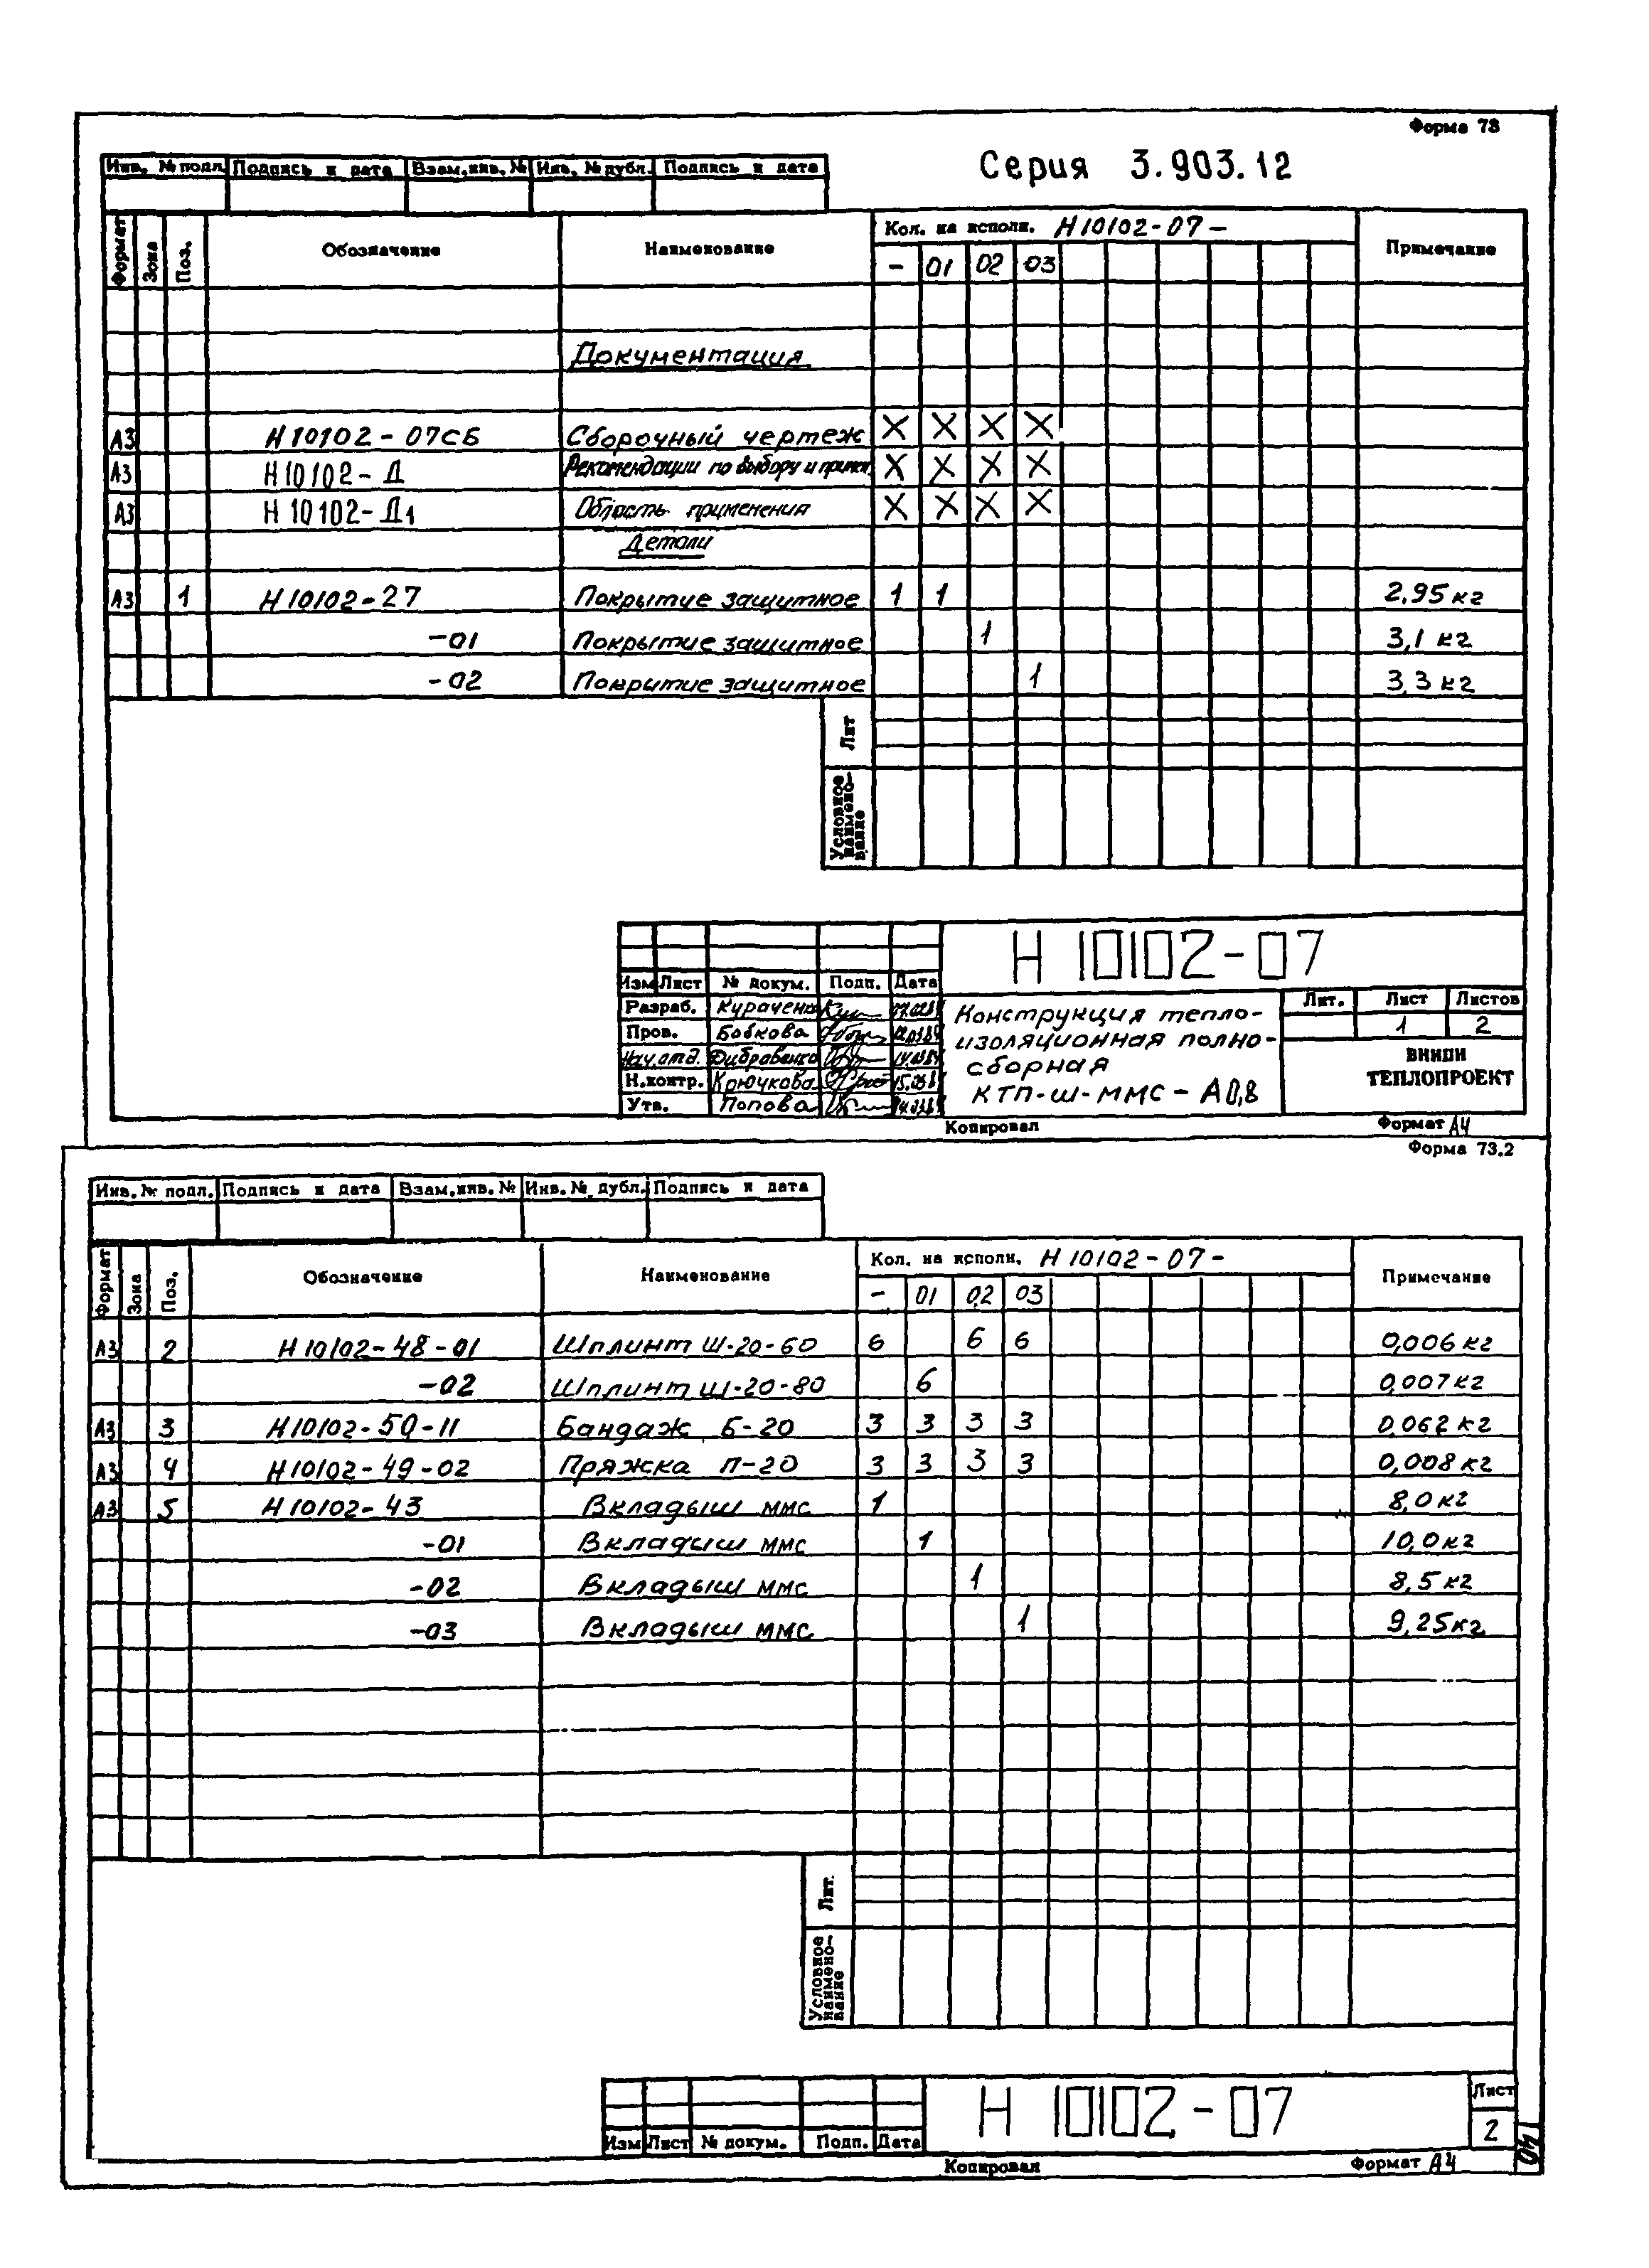 Форма 73
Серия 3.903.12
Инв. № подл. Подпись и дата Взам.инв. № Инв. № дубл. Подпись и дата
Формат Зона Поз. Обозначение Наименование Кол. на исполн. Н10102-07- Примечание
- 01 02 03
Документация
А3 Н10102-07СБ Сборочный чертеж X X X X
А3 Н10102-Д Рекомендации по выбору и примен. X X X X
А3 Н10102-Д1 Область применения X X X X
Детали
А3 1 Н10102-27 Покрытие защитное 1 1 2,95 кг
-01 Покрытие защитное 1 3,1 кг
-02 Покрытие защитное 1 3,3 кг
Лит
Условное наимено-вание
Н 10102-07
Изм Лист № докум. Подп. Дата
Разраб.
Пров. Бобкова
Нач.отд.
Н.контр. Крючкова
Утв. Попова
Конструкция тепло-
изоляционная полно-
сборная
КТП-ш-ММС-А0,8
Лит. Лист Листов
1 2
ВНИПИ
ТЕПЛОПРОЕКТ
Копировал Формат А4
Форма 73.2
Инв. № подл. Подпись и дата Взам.инв. № Инв. № дубл. Подпись и дата
Формат Зона Поз. Обозначение Наименование Кол. на исполн. Н10102-07- Примечание
- 01 02 03
А3 2 Н10102-48-01 Шплинт Ш-20-60 6 6 6 0,006 кг
-02 Шплинт Ш-20-80 6 0,007 кг
А3 3 Н10102-50-11 Бандаж Б-20 3 3 3 3 0,062 кг
А3 4 Н10102-49-02 Пряжка П-20 3 3 3 3 0,008 кг
А3 5 Н10102-43 Вкладыш ммс 1 8,0 кг
-01 Вкладыш ммс 1 10,0 кг
-02 Вкладыш ммс 1 8,5 кг
-03 Вкладыш ммс 1 9,25 кг
Лит.
Условное наимено-вание
Н 10102-07
Лист
2
Изм Лист № докум. Подп. Дата
Копировал Формат А4